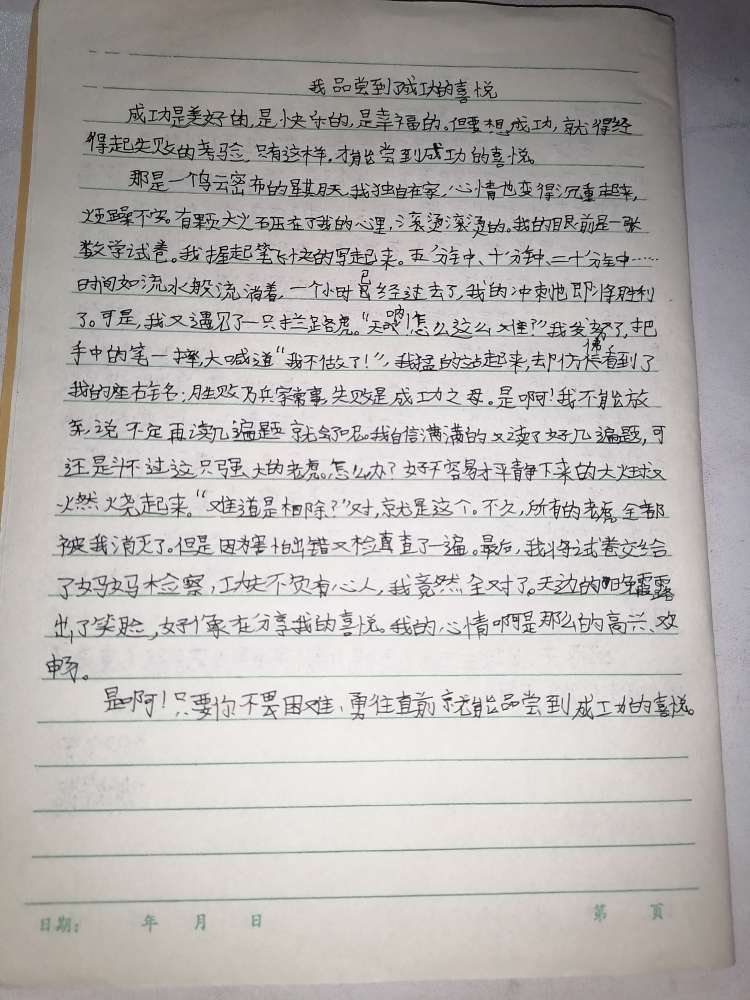 我品尝到了成功的喜悦
成功是美好的,是快乐的,是幸福的。但要想成功,就得经
得起失败的考验,只有这样,才能尝到成功的喜悦。
那是一个乌云密布的星期天,我独自在家,心情也变得沉重起来,
烦躁不安。有颗大火石压在了我的心里,滚烫滚烫的。我的眼前是一张
数学试卷。我握起笔飞快的写起来。五分钟、十分钟、二十分钟……
时间如流水般流淌着,一个小时已经过去了,我的冲刺也即将胜利
了。可是,我又遇见了一只拦路虎。“天呐!怎么这么难?”我发怒了,把
手中的笔一摔,大喊道“我不做了!”,我猛的站起来,去仿佛看到了
我的座右铭:胜败乃兵家常事,失败是成功之母。是啊!我不能放
弃,说不定再读几遍题就会了呢。我自信满满的又读了好几遍题,可
还是斗不过这只强大的老虎。怎么办?好不容易才平静下来的大火球又
燃烧起来。“难道是相除?”对,就是这个。不久,所有的老虎全都
被我消灭了。但是因为害怕出错又检查了一遍。最后,我将试卷交给
了妈妈检察,工夫不负有心人,我竟然全对了。天边的晚霞露
出了笑脸,好像在分享我的喜悦。我的心情啊是那么的高兴、欢
畅。
是啊!只要你不畏困难、勇往直前就能品尝到成功的喜悦。
日期: 年 月 日 第 页